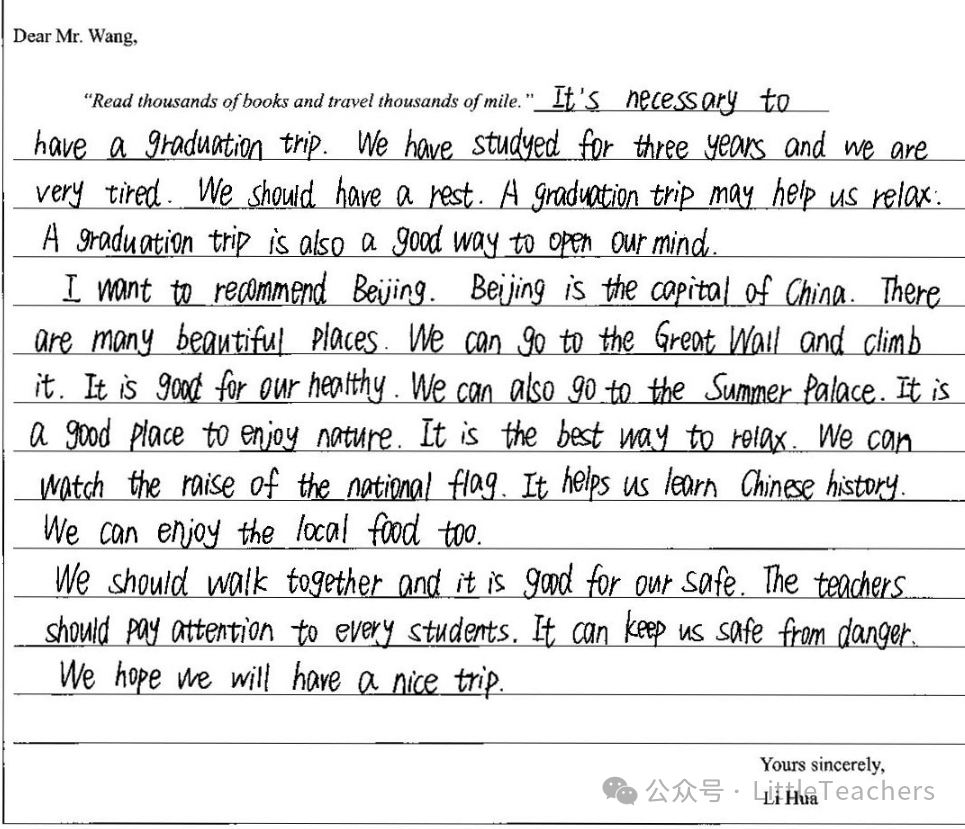 Dear Mr. Wang,
"Read thousands of books and travel thousands of mile." It's necessary to
have a graduation trip. We have studyed for three years and we are
very tired. We should have a rest. A graduation trip may help us relax.
A graduation trip is also a good way to open our mind.
I want to recommend Beijing. Beijing is the capital of China. There
are many beautiful places. We can go to the Great Wall and climb
it. It is good for our healthy. We can also go to the Summer Palace. It is
a good place to enjoy nature. It is the best way to relax. We can
watch the raise of the national flag. It helps us learn Chinese history.
We can enjoy the local food too.
We should walk together and it is good for our safe. The teachers
should pay attention to every students. It can keep us safe from danger.
We hope we will have a nice trip.
Yours sincerely,
Li Hua
公众号 · LittleTeachers